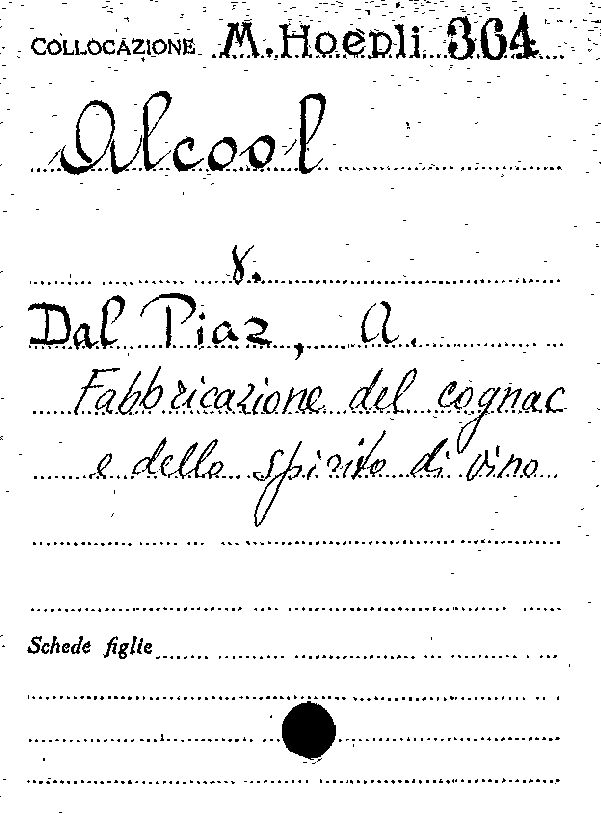 COLLOCAZIONE M. Hoepli 364
Alcool
v.
Dal Piaz, A.
Fabbricazione del cognac
e dello spirito di vino
Schede figlie